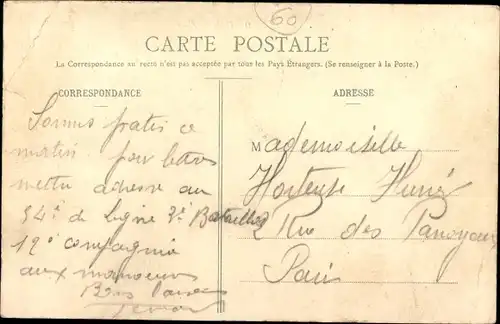 60
CARTE POSTALE
La Correspondance au recto n'est pas acceptée par tous les Pays Étrangers. (Se renseigner à la Poste.)
CORRESPONDANCE
Sommes partis ce
matin. pour lettres
mettre adresse au
34e de Ligne 3e Bataillon
12e compagnie
aux manœuvres
Bons Baisers
ADRESSE
Mademoiselle
Hortense
2 Rue des Panoyaux
Paris